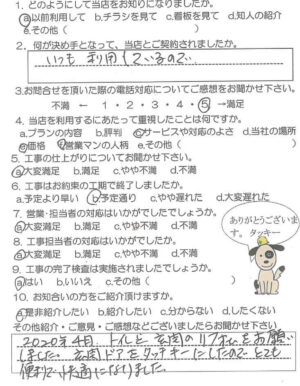 1. どのようにして当店をお知りになりましたか。
ⓐ以前利用して b.チラシを見て c.看板を見て d.知人の紹介
e.その他（ ）
2. 何が決め手となって、当店とご契約されましたか。
いつも利用しているので。
3.お問合せを頂いた際の電話対応についてご感想をお聞かせ下さい。
不満 ← 1・2・3・4・⑤ →満足
4. 当店を利用するにあたって重視したことは何ですか。
a.プランの内容 b.評判 ⓒサービスや対応のよさ d.当社の場所
ⓔ価格 ⓕ営業マンの人柄 e.その他（ ）
5. 工事の仕上がりについてお聞かせ下さい。
ⓐ大変満足 b.満足 c.やや不満 d.不満
6. 工事はお約束の工期で終了しましたか。
a.予定より早い ⓑ予定通り c.やや遅れた d.大変遅れた
7. 営業・担当者の対応はいかがでしたでしょうか。
ⓐ大変満足 b.満足 c.やや不満 d.不満
ありがとうございま
す。タッキー
8. 工事担当者の対応はいかがでしたか。
ⓐ大変満足 b.満足 c.やや不満 d.不満
9. 工事の完了検査は実施されましたでしょうか。
ⓐはい b.いいえ c.その他（ ）
10. お知り合いの方をご紹介頂けますか。
ⓐ是非紹介したい b.紹介したい c.分からない d.したくない
その他紹介・ご意見・ご感想などございましたらお聞かせ下さい
2020年4月、トイレと玄関のリフォームをお願い
しました。玄関ドアをタッチキーにしたのでとても
便利で快適になりました。